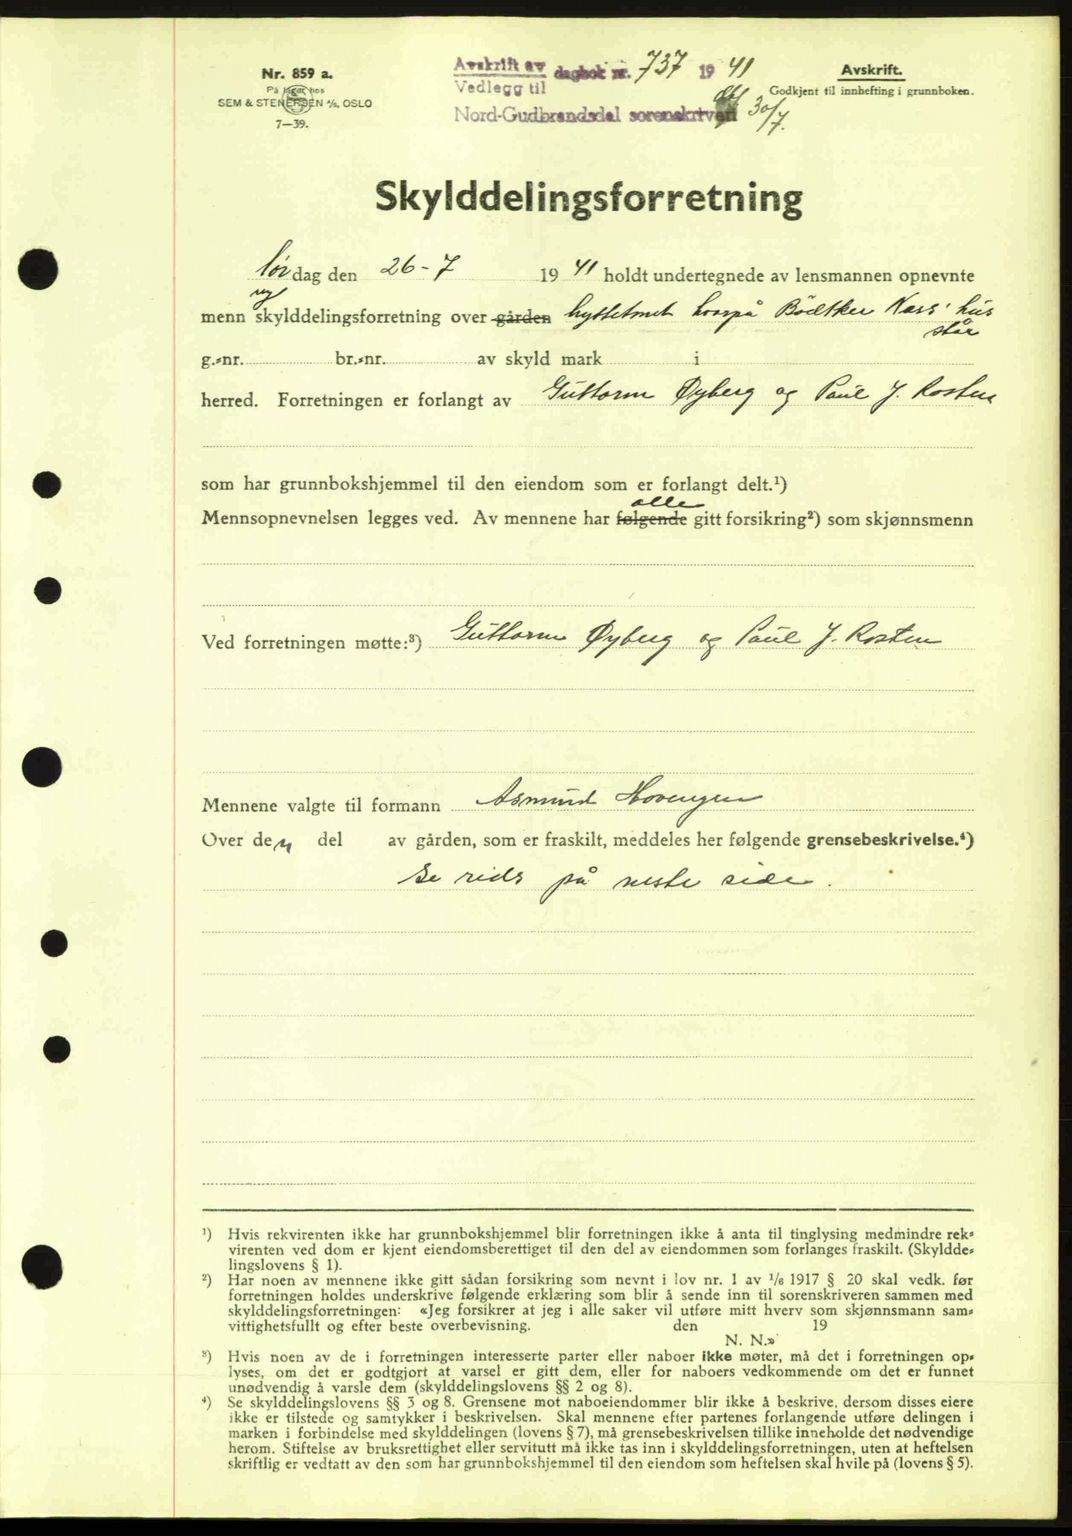 Nr. 859 a.
På lager hos
SEM & STENERSEN A/S, OSLO
7—39.
Avskrift av dagbok nr. 737 1941
Vedlegg til
Nord-Gudbrandsdal sorenskriveri 30/7.
Avskrift.
Godkjent til innhefting i grunnboken.
Skylddelingsforretning
lørdag den 26-7 1941 holdt undertegnede av lensmannen opnevnte
menn ny skylddelingsforretning over gården hyttetomt hvorpå Bödtker Næss' hus står
g.-nr. br.-nr. av skyld mark i
herred. Forretningen er forlangt av Guttorm Øyberg og Paul J. Rosten
som har grunnbokshjemmel til den eiendom som er forlangt delt.¹)
Mennsopnevnelsen legges ved. Av mennene har følgende alle gitt forsikring²) som skjønnsmenn
Ved forretningen møtte:³) Guttorm Øyberg og Paul J. Rosten
Mennene valgte til formann Asmund Hovengen
Over den del av gården, som er fraskilt, meddeles her følgende grensebeskrivelse.⁴)
Se rids på neste side.
¹) Hvis rekvirenten ikke har grunnbokshjemmel blir forretningen ikke å anta til tinglysing medmindre rek-
virenten ved dom er kjent eiendomsberettiget til den del av eiendommen som forlanges fraskilt. (Skyldde-
lingslovens § 1).
²) Har noen av mennene ikke gitt sådan forsikring som nevnt i lov nr. 1 av 1/6 1917 § 20 skal vedk. før
forretningen holdes underskrive følgende erklæring som blir å sende inn til sorenskriveren sammen med
skylddelingsforretningen: «Jeg forsikrer at jeg i alle saker vil utføre mitt hverv som skjønnsmann sam-
vittighetsfullt og efter beste overbevisning. den 19
N. N.»
³) Hvis noen av de i forretningen interesserte parter eller naboer ikke møter, må det i forretningen op-
lyses, om det er godtgjort at varsel er gitt dem, eller for naboers vedkommende om det er funnet
unødvendig å varsle dem (skylddelingslovens §§ 2 og 8).
⁴) Se skylddelingslovens §§ 3 og 8. Grensene mot naboeiendommer blir ikke å beskrive, dersom disses eiere
ikke er tilstede og samtykker i beskrivelsen. Skal mennene efter partenes forlangende utføre delingen i
marken i forbindelse med skylddelingen (lovens § 7), må grensebeskrivelsen tillike inneholde det nødvendige
herom. Stiftelse av bruksrettighet eller servitutt må ikke tas inn i skylddelingsforretningen, uten at heftelsen
skriftlig er vedtatt av den som har grunnbokshjemmel til den eiendom som heftelsen skal hvile på (lovens § 5).